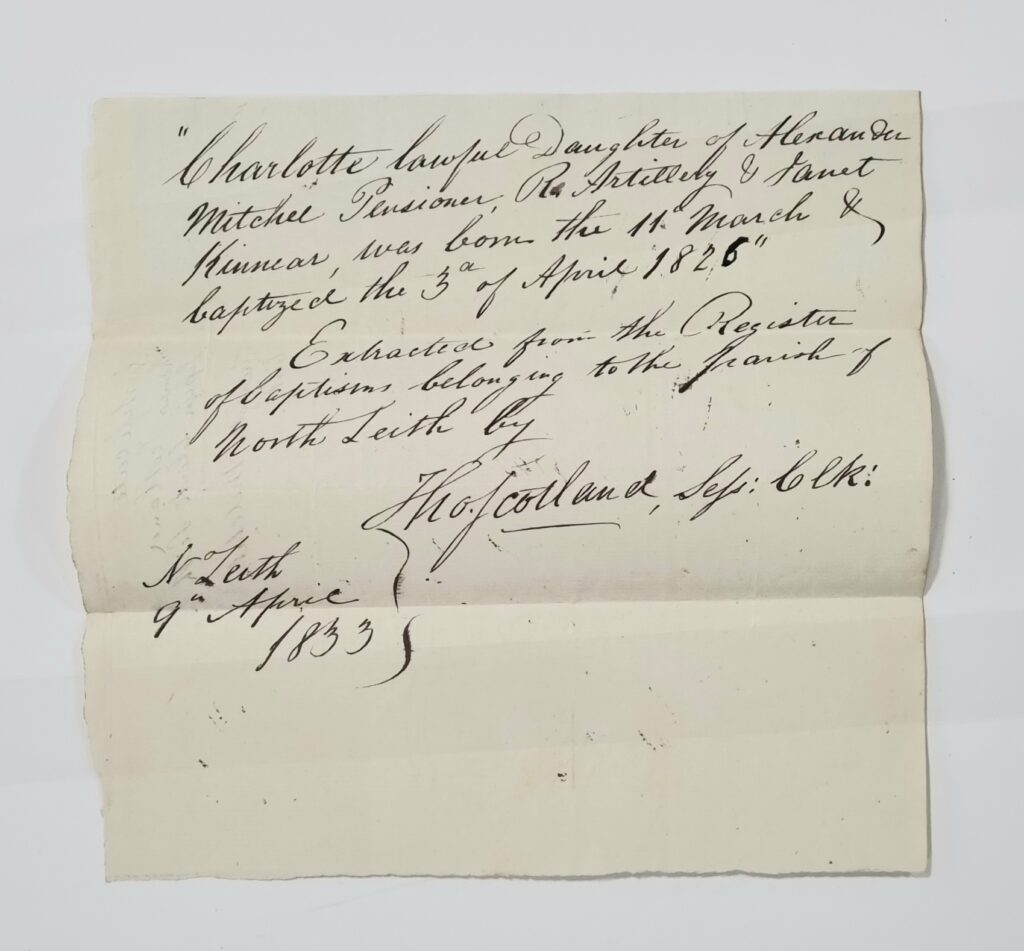 "Charlotte lawful Daughter of Alexander
Mitchel Pensioner, R. Artillery & Janet
Kinnear, was born the 11th March &
baptized the 3d of April 1826"
Extracted from the Register
of baptisms belonging to the Parish of
North Leith by
Tho. Scotland, Sess: Clk:
N Leith
9th April
1833